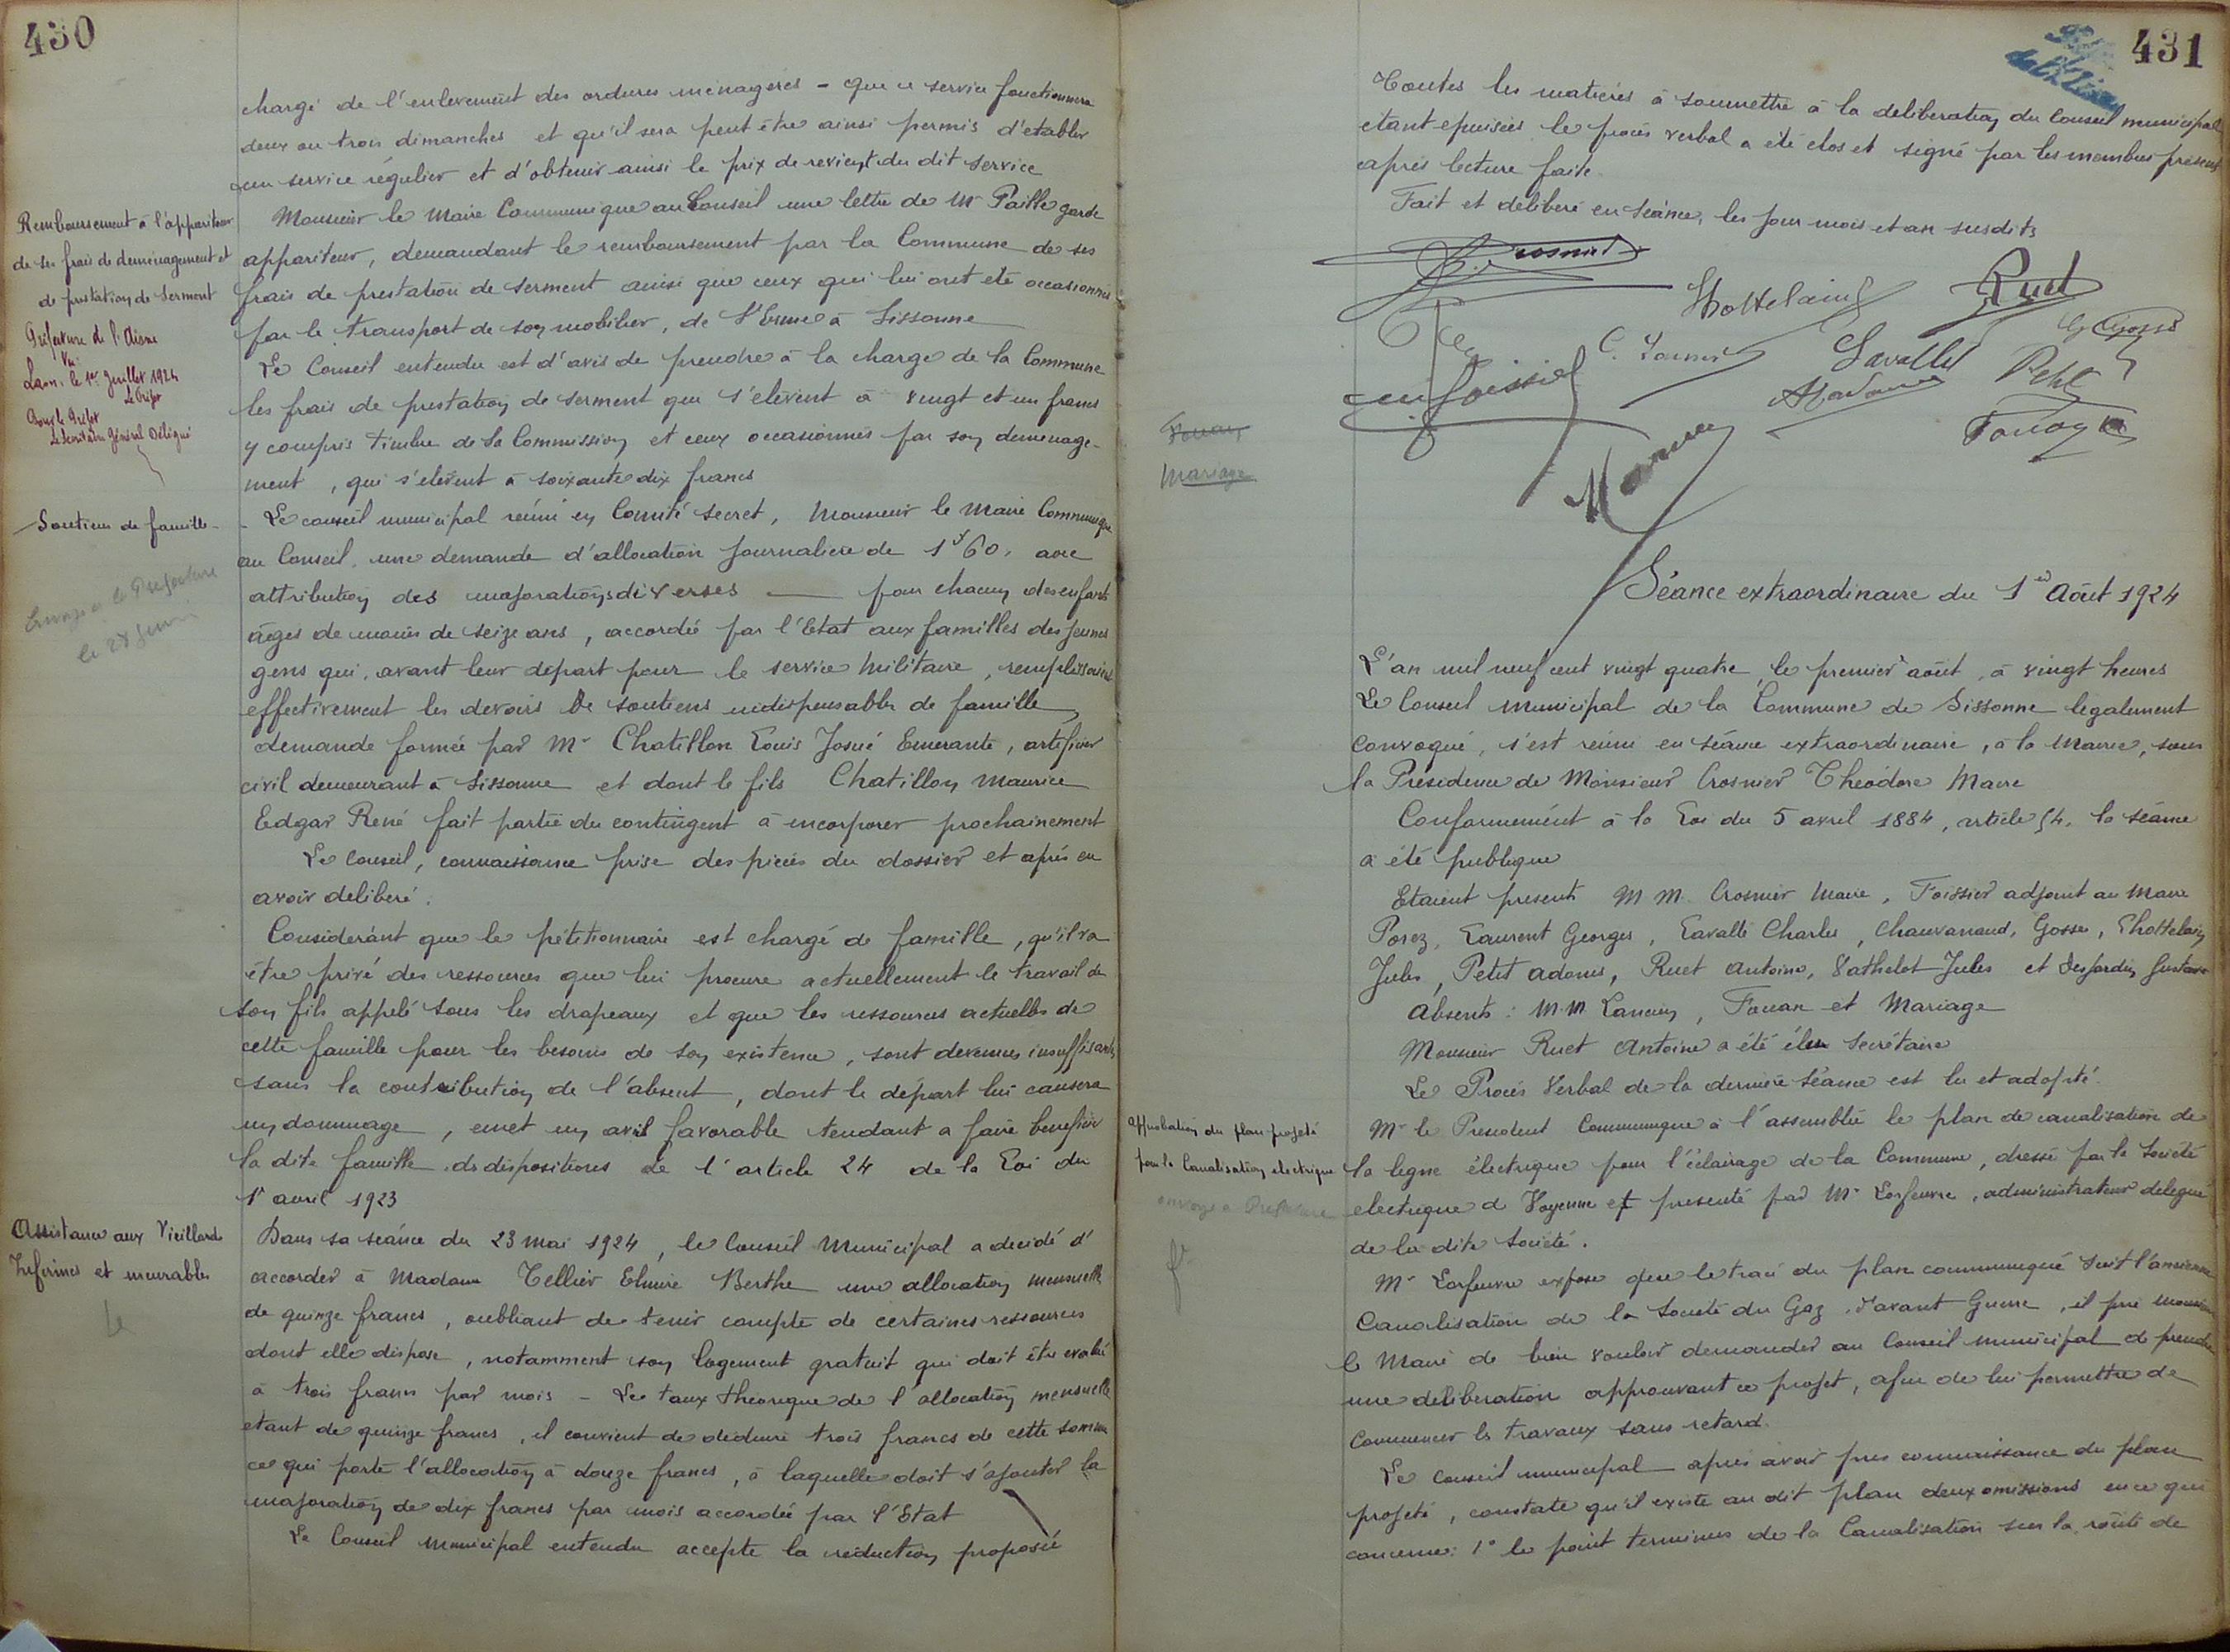 430
chargé de l'enlevement des ordures ménagères - que ce service fonctionnera
deux ou trois dimanches et qu'il sera peut être ainsi permis d'etablir
un service régulier et d'obtenir ainsi le prix de revient du dit service
Remboursement à l'appariteur
de ses frais de déménagement et
de prestation de Serment
Préfecture de l'Aisne
Vu:
Laon, le 1er Juillet 1924
Le Préfet
Pour le Préfet
Le Secrétaire Général Délégué
Monsieur le Maire Communique au Conseil une lettre de Mr Paille garde
appariteur, demandant le remboursement par la Commune de ses
frais de prestation de serment ainsi que ceux qui lui ont eté occasionnés
par le transport de son mobilier, de S'Erme à Sissonne
Le Conseil entendu est d'avis de prendre à la charge de la Commune
les frais de prestation de serment qui s'elèvent à vingt et un francs
y compris timbre de la Commission et ceux occasionnés par son demenage-
ment, qui s'elèvent à soixante dix francs
Soutien de famille -
Envoyé à la Prefecture
le 28 Juin
- Le conseil municipal reuni en Comité secret, Monsieur le Maire Communique
au Conseil une demande d'allocation journaliere de 1f60, avec
attribution des majorations diverses — pour chacun des enfants
âgés de moins de seize ans, accordée par l'Etat aux familles des jeunes
gens qui, avant leur départ pour le service Militaire, remplissaient
effectivement les devoirs de soutiens indispensables de famille,
demande formée par Mr Chatillon Louis Josué Emerante, artificier
civil demeurant à Sissonne et dont le fils Chatillon Maurice
Edgar René fait partie du contingent à incorporer prochainement
Le Conseil, connaissance prise des pièces du dossier et après en
avoir deliberé.
Considerant que le pétitionnaire est chargé de famille, qu'il va
être privé des ressources que lui procure actuellement le travail de
son fils appelé sous les drapeaux et que les ressources actuelles de
cette famille pour les besoins de son existence, sont devenues insuffisantes
sans la contribution de l'absent, dont le départ lui causera
un dommage, emet un avis favorable tendant a faire beneficier
la dite famille ds dispositions de l'article 24 de la Loi du
1r avril 1923
Assistance aux Vieillards
Infirmes et incurables
Dans sa séance du 23 Mai 1924, le Conseil Municipal a decidé d'
accorder à Madame Tellier Elmire Berthe une allocation mensuelle
de quinze francs, oubliant de tenir compte de certaines ressources
dont elle dispose, notamment son logement gratuit qui doit être evalué
à trois francs par mois - Le taux théorique de l'allocation mensuelle
etant de quinze francs, il convient de deduire trois francs de cette somme
ce qui porte l'allocation à douze francs, à laquelle doit s'ajouter la
majoration de dix francs par mois accordée par l'Etat
Le Conseil Municipal entendu accepte la réduction proposée
431
Toutes les matières à soumettre à la deliberation du Conseil municipal
etant epuisées le procès verbal a été clos et signé par les membres présents
après lecture faite.
Fait et deliberé en séance, les jour mois et an susdits
Crosnier
Lhottelain
Ruet
G Gosse
Lavallé
Petit
Foissier
Fouan
Mariage
Séance extraordinaire du 1er Août 1924
L'an mil neuf cent vingt quatre, le premier août, à vingt heures
Le Conseil Municipal de la Commune de Sissonne legalement
convoqué, s'est reuni en séance extraordinaire, à la Mairie, sous
la Présidence de Monsieur Crosnier Théodore Maire
Conformément à la Loi du 5 avril 1884, article 54, la séance
a été publique
Etaient présents M M. Crosnier Maire, Foissier adjoint au Maire
Porez, Laurent Georges, Lavallé Charles, Chauvanaud, Gosse, Lhottelain
Jules, Petit Adonis, Ruet Antoine, Vathelot Jules et Desjardin Gustave
Absents: M.M Fouan et Mariage
Monsieur Ruet Antoine a été élu Secrétaire
Le Procès Verbal de la dernière Séance est lu et adopté.
Approbation du plan projeté
pour la Canalisation électrique
envoyé à Prefecture
Mr le President Communique à l'assemblée le plan de canalisation de
la ligne électrique pour l'éclairage de la Commune, dressé par la Société
electrique de Voyenne et presenté par Mr Lorfeuvre, administrateur delegué
de la dite Société.
Mr Lorfeuvre expose que le tracé du plan communiqué suit l'ancienne
Canalisation de la Société du Gaz d'avant Guerre, il prie Monsieur
le Maire de bien vouloir demander au Conseil municipal de prendre
une deliberation approuvant ce projet, afin de lui permettre de
commencer les travaux sans retard.
Le Conseil municipal après avoir pris connaissance du plan
projeté, constate qu'il existe au dit plan deux omissions en ce qui
concerne: 1° le point terminus de la Canalisation sur la route de